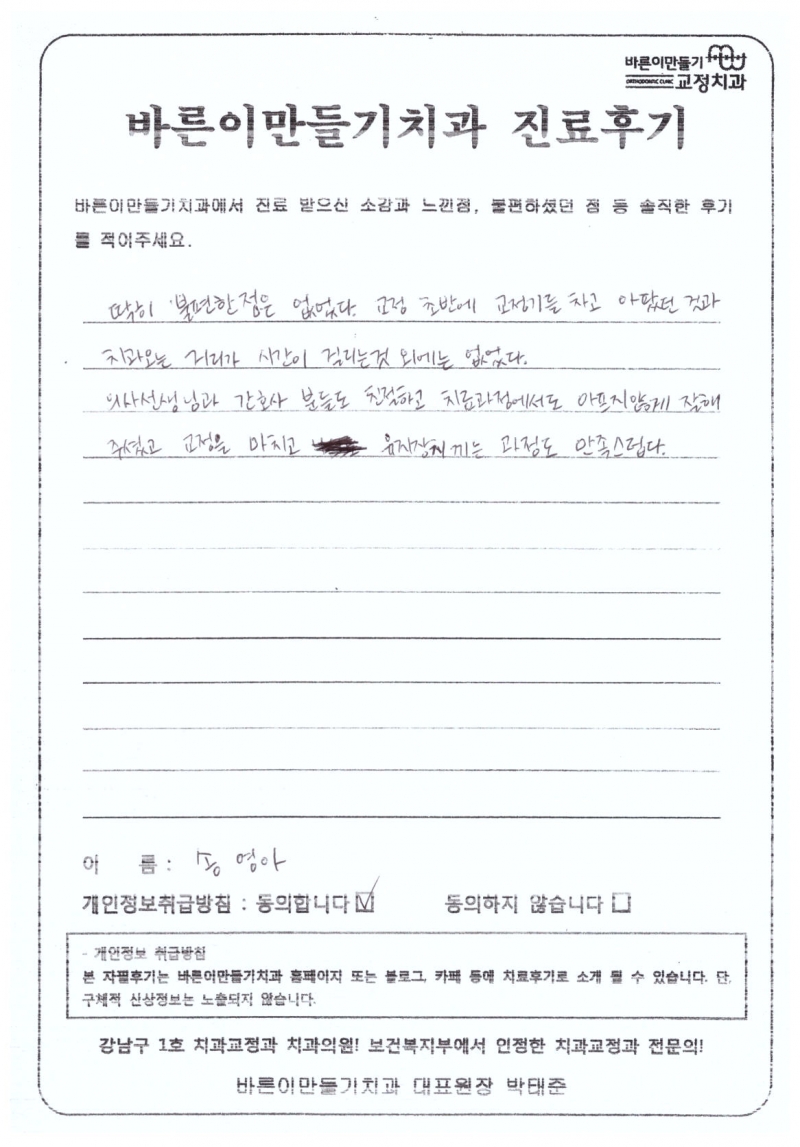 바른이만들기
ORTHODONTIC CLINIC 교정치과
바른이만들기치과 진료후기
바른이만들기치과에서 진료 받으신 소감과 느낀점, 불편하셨던 점 등 솔직한 후기
를 적어주세요.
딱히 불편한점은 없었다. 교정 초반에 교정기를 차고 아팠던 것과
치과오는 거리가 시간이 걸리는것 외에는 없었다.
의사선생님과 간호사 분들도 친절하고 치료과정에서도 아프지않게 잘해
주셨고 교정을 마치고 유지장치 끼는 과정도 만족스럽다.
이 름 : 송영아
개인정보취급방침 : 동의합니다 ☑ 동의하지 않습니다 ☐
- 개인정보 취급방침
본 자필후기는 바른이만들기치과 홈페이지 또는 블로그, 카페 등에 치료후기로 소개 될 수 있습니다. 단,
구체적 신상정보는 노출되지 않습니다.
강남구 1호 치과교정과 치과의원! 보건복지부에서 인정한 치과교정과 전문의!
바른이만들기치과 대표원장 박태준